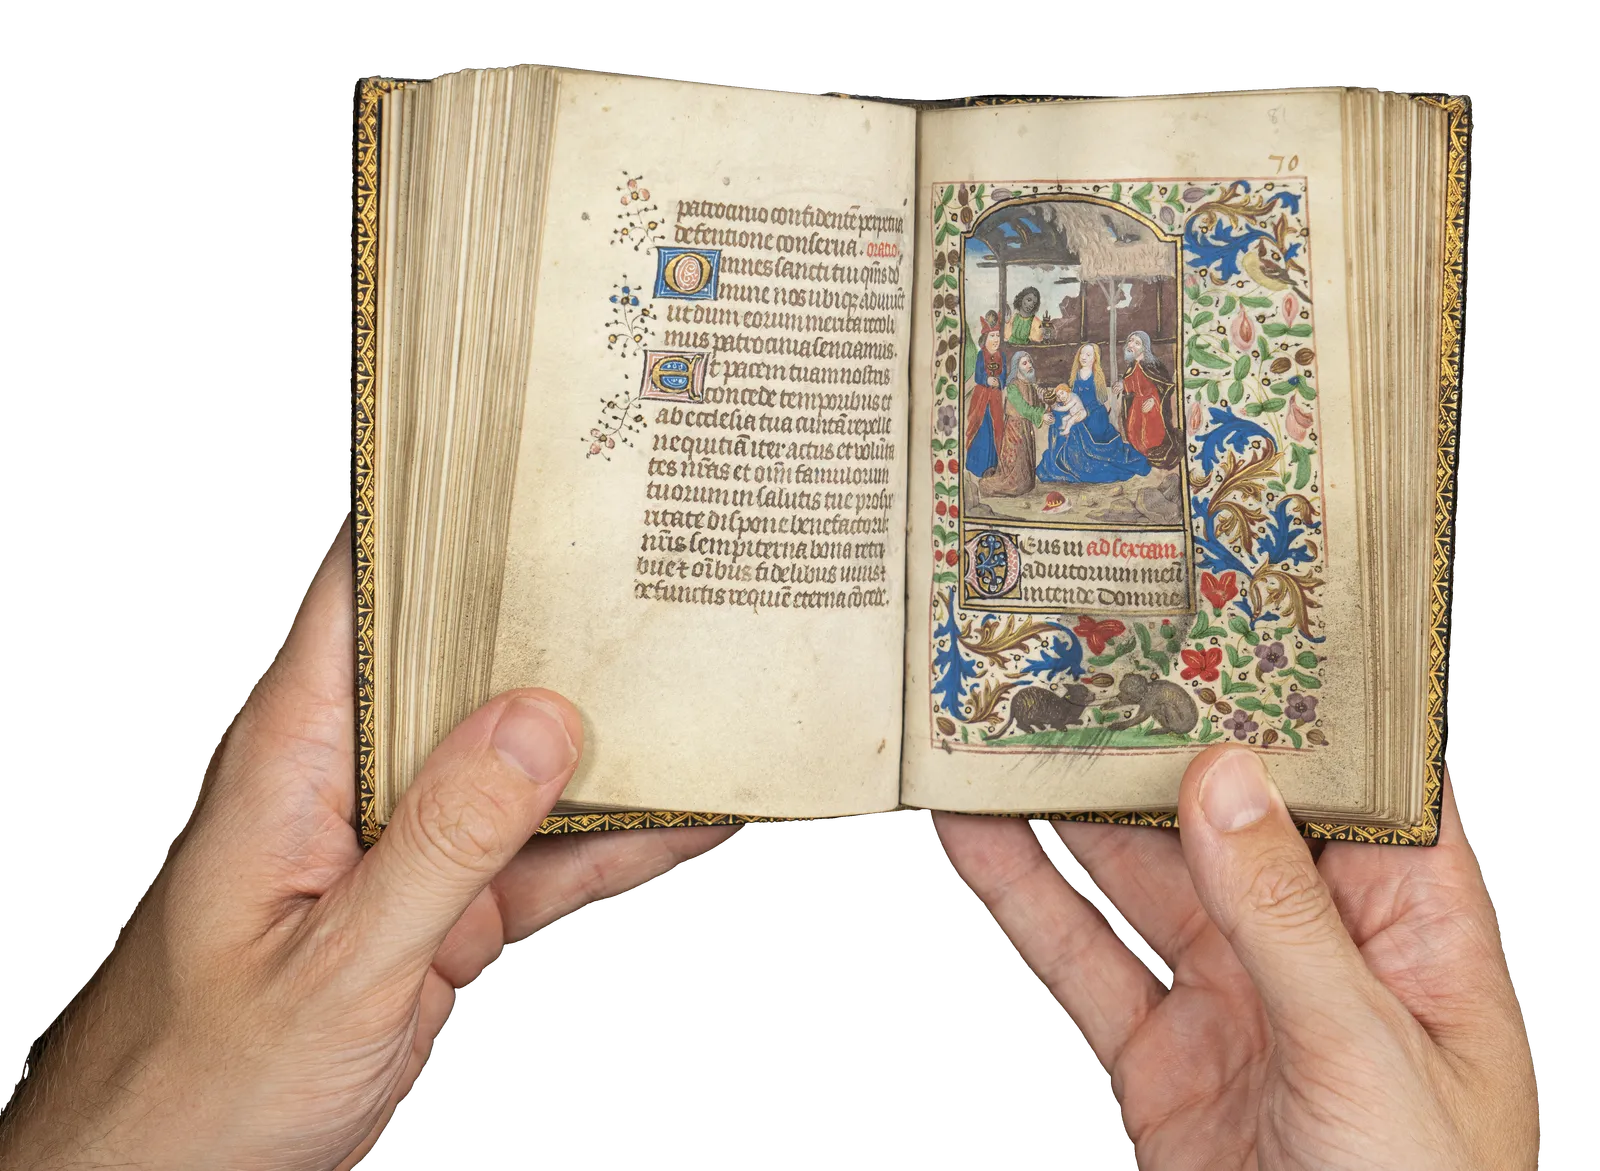 patrocinio confidentē perpetua
defentione conserua. oratio.
Omnes sancti tui qm̄s do
mine nos ubiqꝫ adiuuēt
ut dum eorum merita recoli
mus patrocinia senciamus.
Et pacem tuam nostris
concede temporibus et
ab ecclesia tua cunctā repelle
nequitiā iter actus et volūta
tes nr̄as et oīm famulorum
tuorum in salutis tue prosp̄
ritate dispone benefactorib̄
nr̄is sempiterna bona retri
bue & oībus fidelibus uiuis &
defunctis requiē eterna cōcede.
81
70
Deus in ad sextam.
adiutorium meū
intende Domine